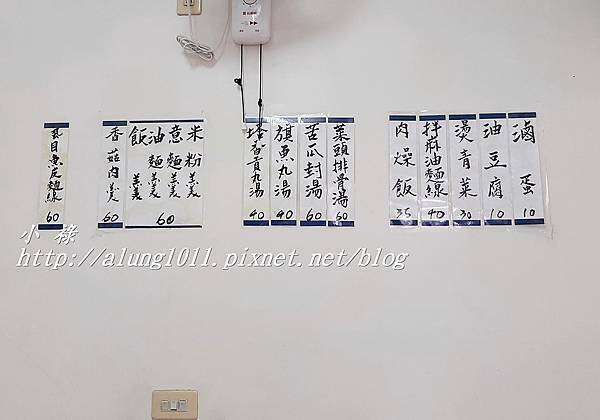 滷蛋 10
油豆腐 10
燙青菜 30
拌麻油麵線 40
肉燥飯 35
菜頭排骨湯 60
苦瓜封湯 60
旗魚丸湯 40
香貢丸湯 40
米粉羹
意麵羹
油麵羹
飯羹
60
香菇肉羹 60
虱目魚皮麵線 60
小祿
http://alung1011.pixnet.net/blog